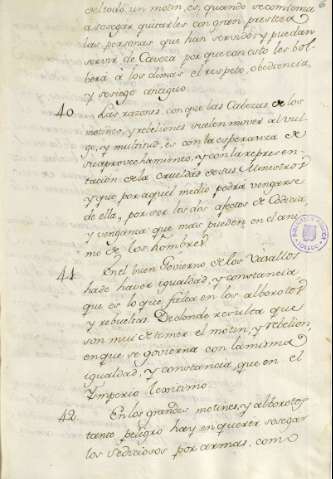 del todo, un motin, es, quando se comienza
a sosegar quitarles con gran presteza
las personas que han servido, y puedan
servir de Caveza por que con esto les bol-
berá a los demas el respeto, obediencia,
y sosiego antiguo.
40. Las razones, con que las Cabezas de los
motines, y rebeliones suelen mover al vul-
go, y multitud, es con la esperanza de
su aprovechamiento, y con la represen-
tacion de la Crueldad de sus Ministros,
y que por aquel medio podrá vengarse
de ella, por ser los dos afectos de Codicia,
y venganza que mas pueden en el ani-
mo de los hombres.
41. En el buen Govierno de los Vasallos
hade haver igualdad, y constancia
que es lo que falta en los alborotos
y rebueltas. De donde resulta que
son mui de temer el motin, y rebelion,
en que se govierna con la misma
igualdad, y constancia, que en el
Ymperio lexitimo.
42. En los grandes motines, y alborotos
tanto peligro hay en querer sosegar
los sediciosos por armas, como